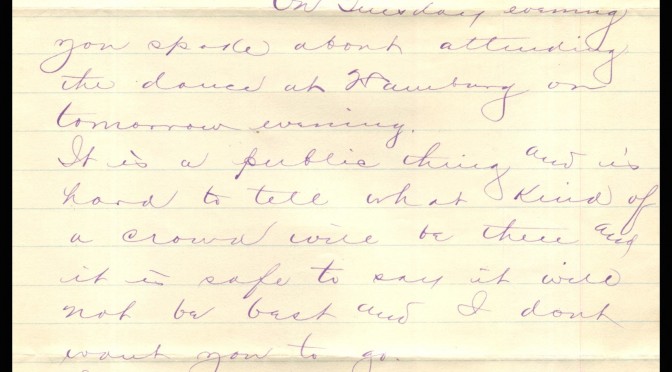 On Tuesday evening
you spoke about attending
the dance at Hamburg on
tomorrow evening.
It is a public thing and is
hard to tell what kind of
a crowd will be there and
it is safe to say it will
not be best and I dont
want you to go.